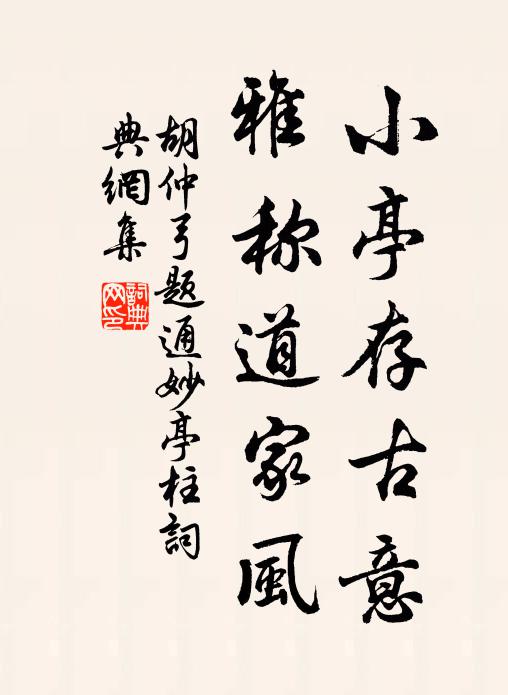 小亭存古意
雅称道家風
胡仲弓题通妙亭柱詞
典網集
詞典网印